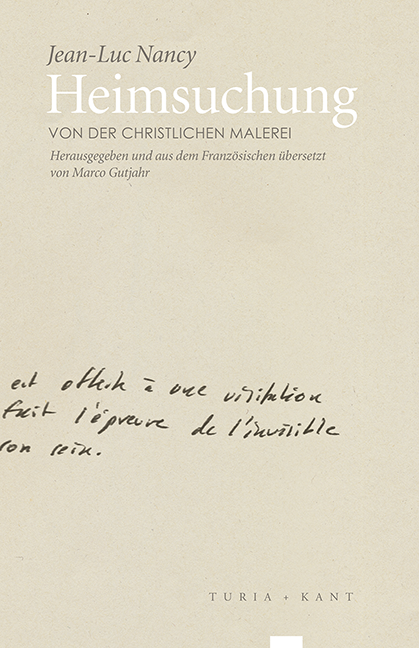 Jean-Luc Nancy
Heimsuchung
VON DER CHRISTLICHEN MALEREI
Herausgegeben und aus dem Französischen übersetzt
von Marco Gutjahr
est offerte à une visitation
fait l'épreuve de l'invisible
son sein.
TURIA + KANT